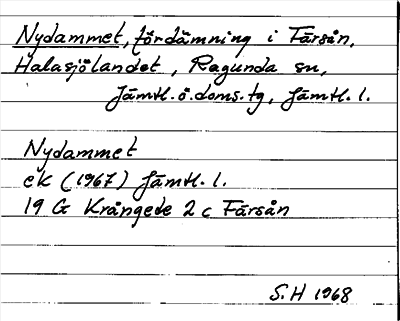 Nydammet, fördämning i Färsån,
Halasjölandet, Ragunda sn,
Jämtl.ö.doms.tg, Jämtl. l.
Nydammet
ek (1967) Jämtl. l.
19 G Krångede 2 c Färsån
S.H 1968